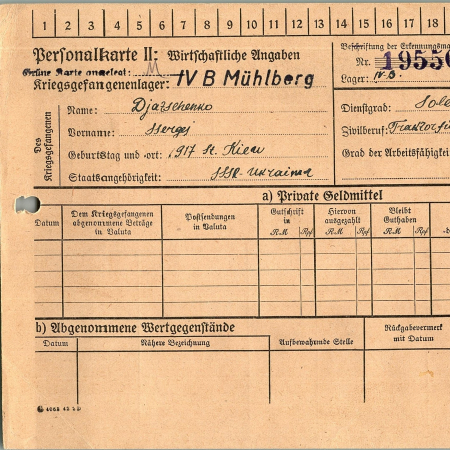 1 2 3 4 5 6 7 8 9 10 11 12 13 14 15 16 17 18
Personalkarte II: Wirtschaftliche Angaben
Beschriftung der Erkennungsma
Grüne Karte angelegt:
Nr. 19550
Kriegsgefangenenlager: IV B Mühlberg
Lager: IV.B.
Des Kriegsgefangenen
Name: Djatschenko
Dienstgrad: Sol
Vorname: Sergej
Zivilberuf: Traktor
Geburtstag und -ort: 1917 St. Kiew
Grad der Arbeitsfähigkei
Staatsangehörigkeit: SSR-Ukraina
a) Private Geldmittel
Datum
Dem Kriegsgefangenen abgenommene Beträge in Valuta
Postsendungen in Valuta
Gutschrift in
RM Rpf
Hiervon ausgezahlt
RM Rpf
Bleibt Guthaben
RM Rpf
b) Abgenommene Wertgegenstände
Datum
Nähere Bezeichnung
Aufbewahrende Stelle
Rückgabevermerk mit Datum